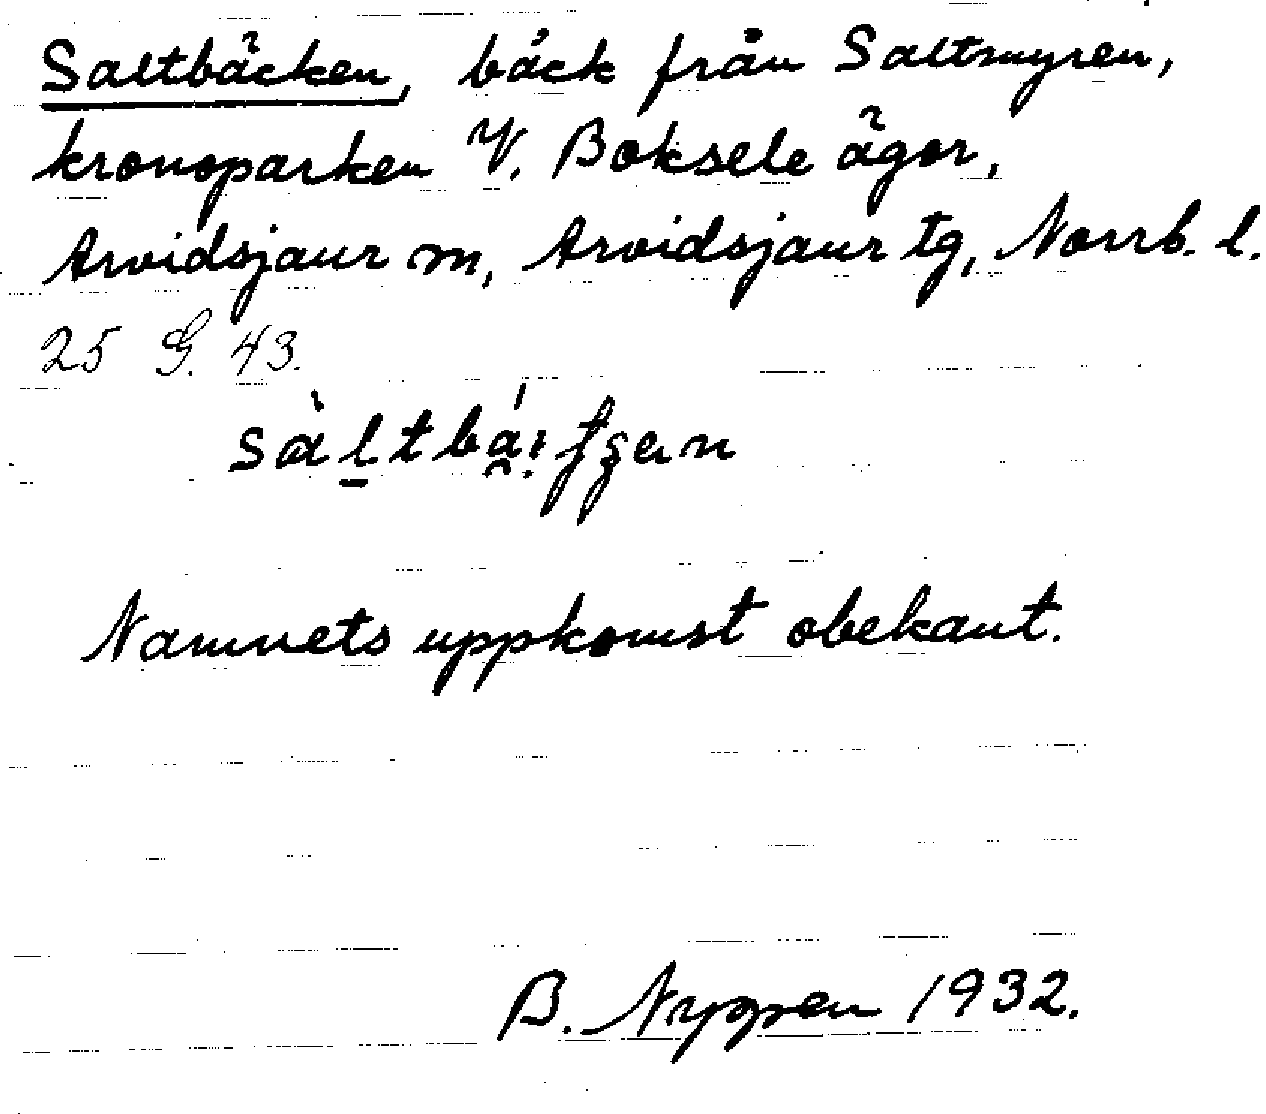 Saltbäcken, bäck från Saltmyren,
kronoparken V. Boksele ägor,
Arvidsjaur m, Arvidsjaur tg, Norrb. l.
25 G. 43.
Namnets uppkomst obekant.
B. Nygren 1932.